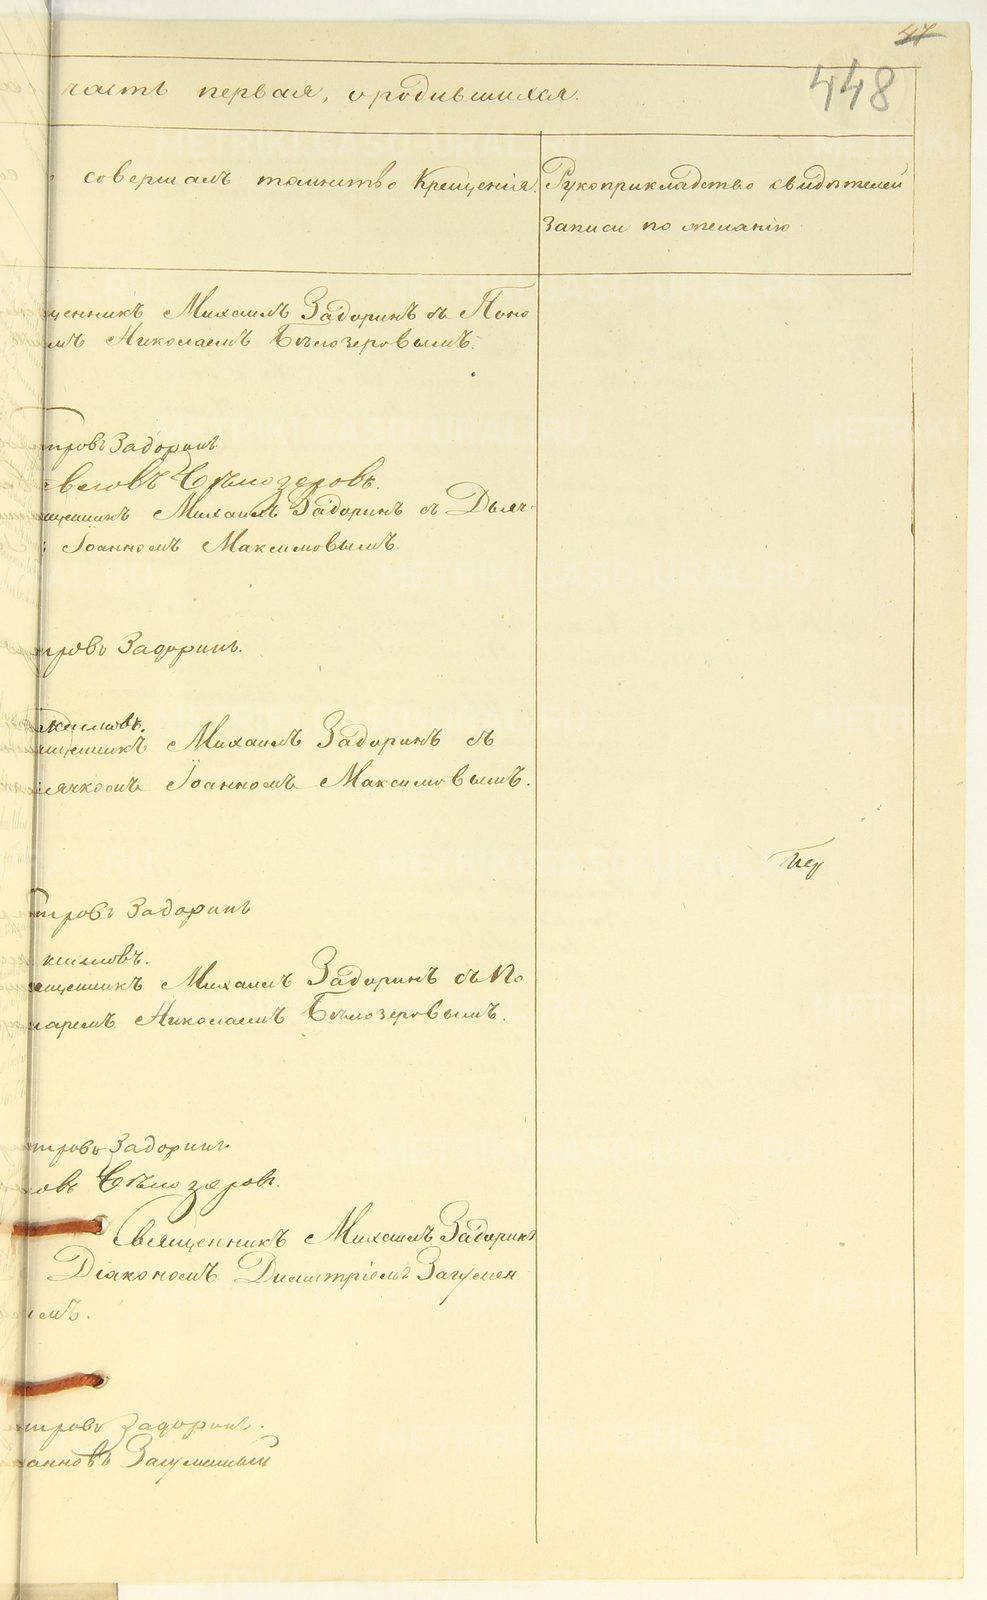 47
448
часть первая, о родившихся.
совершалъ таинство Крещенія.
Рукоприкладство свидѣтелей
записи по желанію
щенникъ Михаилъ Задоринъ съ Поно
мъ Николаемъ Бѣлозеровымъ.
тровъ Задоринъ
Бѣлозеровъ.
щенникъ Михаилъ Задоринъ съ Дьяч-
Іоанномъ Максимовымъ.
тровъ Задоринъ.
ксимовъ.
щенникъ Михаилъ Задоринъ съ
ячкомъ Іоанномъ Максимовымъ.
тровъ Задоринъ
ксимовъ.
щенникъ Михаилъ Задоринъ съ По
маремъ Николаемъ Бѣлозеровымъ.
тровъ Задоринъ
овъ Бѣлозеровъ.
Священникъ Михаилъ Задоринъ
Діакономъ Димитріемъ Загумен
мъ.
тровъ Задоринъ.
анновъ Загуменный
METRIKI.GASO-URAL.RU